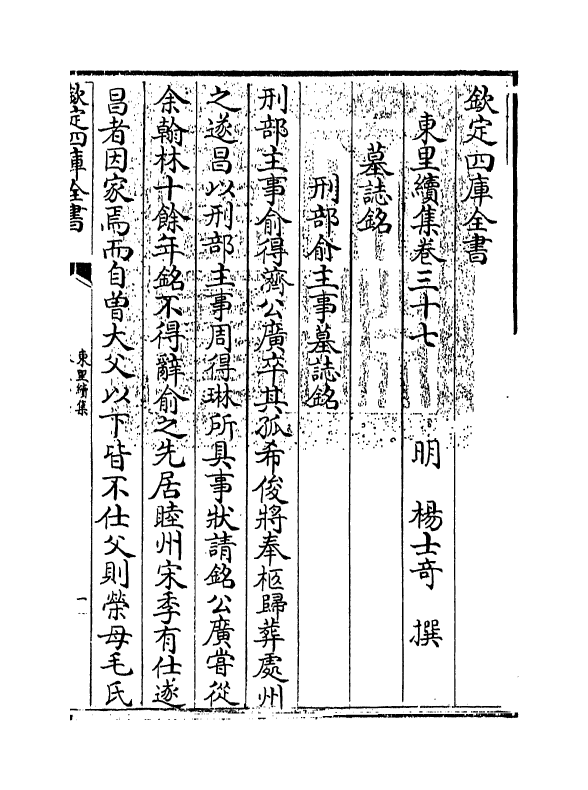 欽定四庫全書
東里續集卷三十七
明 楊士奇 撰
墓誌銘
刑部俞主事墓誌銘
刑部主事俞得濟公廣卒其孤希俊將奉柩歸葬處州
之遂昌以刑部主事周得琳所具事狀請銘公廣嘗從
余翰林十餘年銘不得辭俞之先居睦州宋季有仕遂
昌者因家焉而自曾大父以下皆不仕父則榮母毛氏
欽定四庫全書
東里續集
一